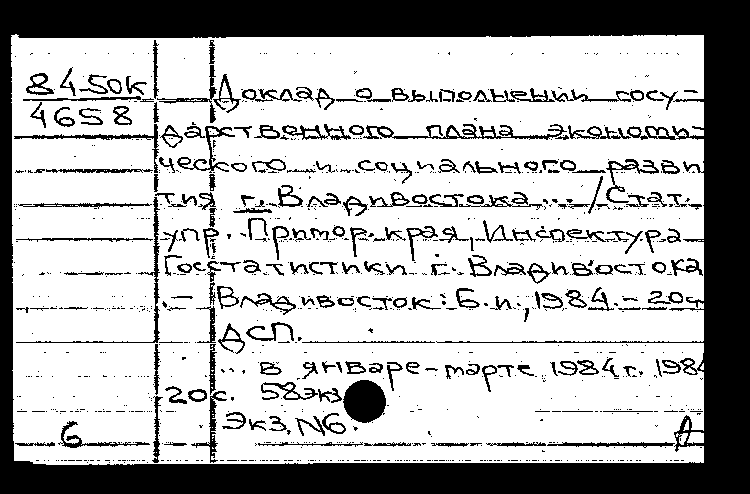 84-50к
4658
Доклад о выполнении госу-
дарственного плана экономи-
ческого и социального разви
тия г. Владивостока... /Стат.
упр. Примор. края, Инспектура
Госстатистики г. Владивостока
.– Владивосток: Б.и., 1984.– 20с
ДСП.
... в январе-марте 1984г. 1984
20с. 58экз
Экз. N6.
6
А